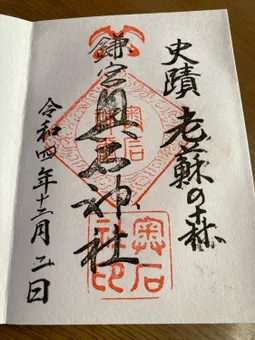 史蹟 老蘇の森
鎌宮奥石神社
奥石
社印
令和四年十二月二日